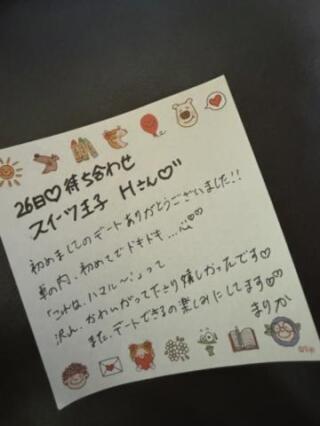 26日♡待ち合わせ
スイーツ王子 Hさん♡
初めましてのデートありがとうございました!!
車の内、初めてでドキドキ…
「こっちは、ハマル〜♪」って
沢山、かわいがってたさり嬉しかったです♡
また、デートできるの楽しみにしてます♡♡
まりか